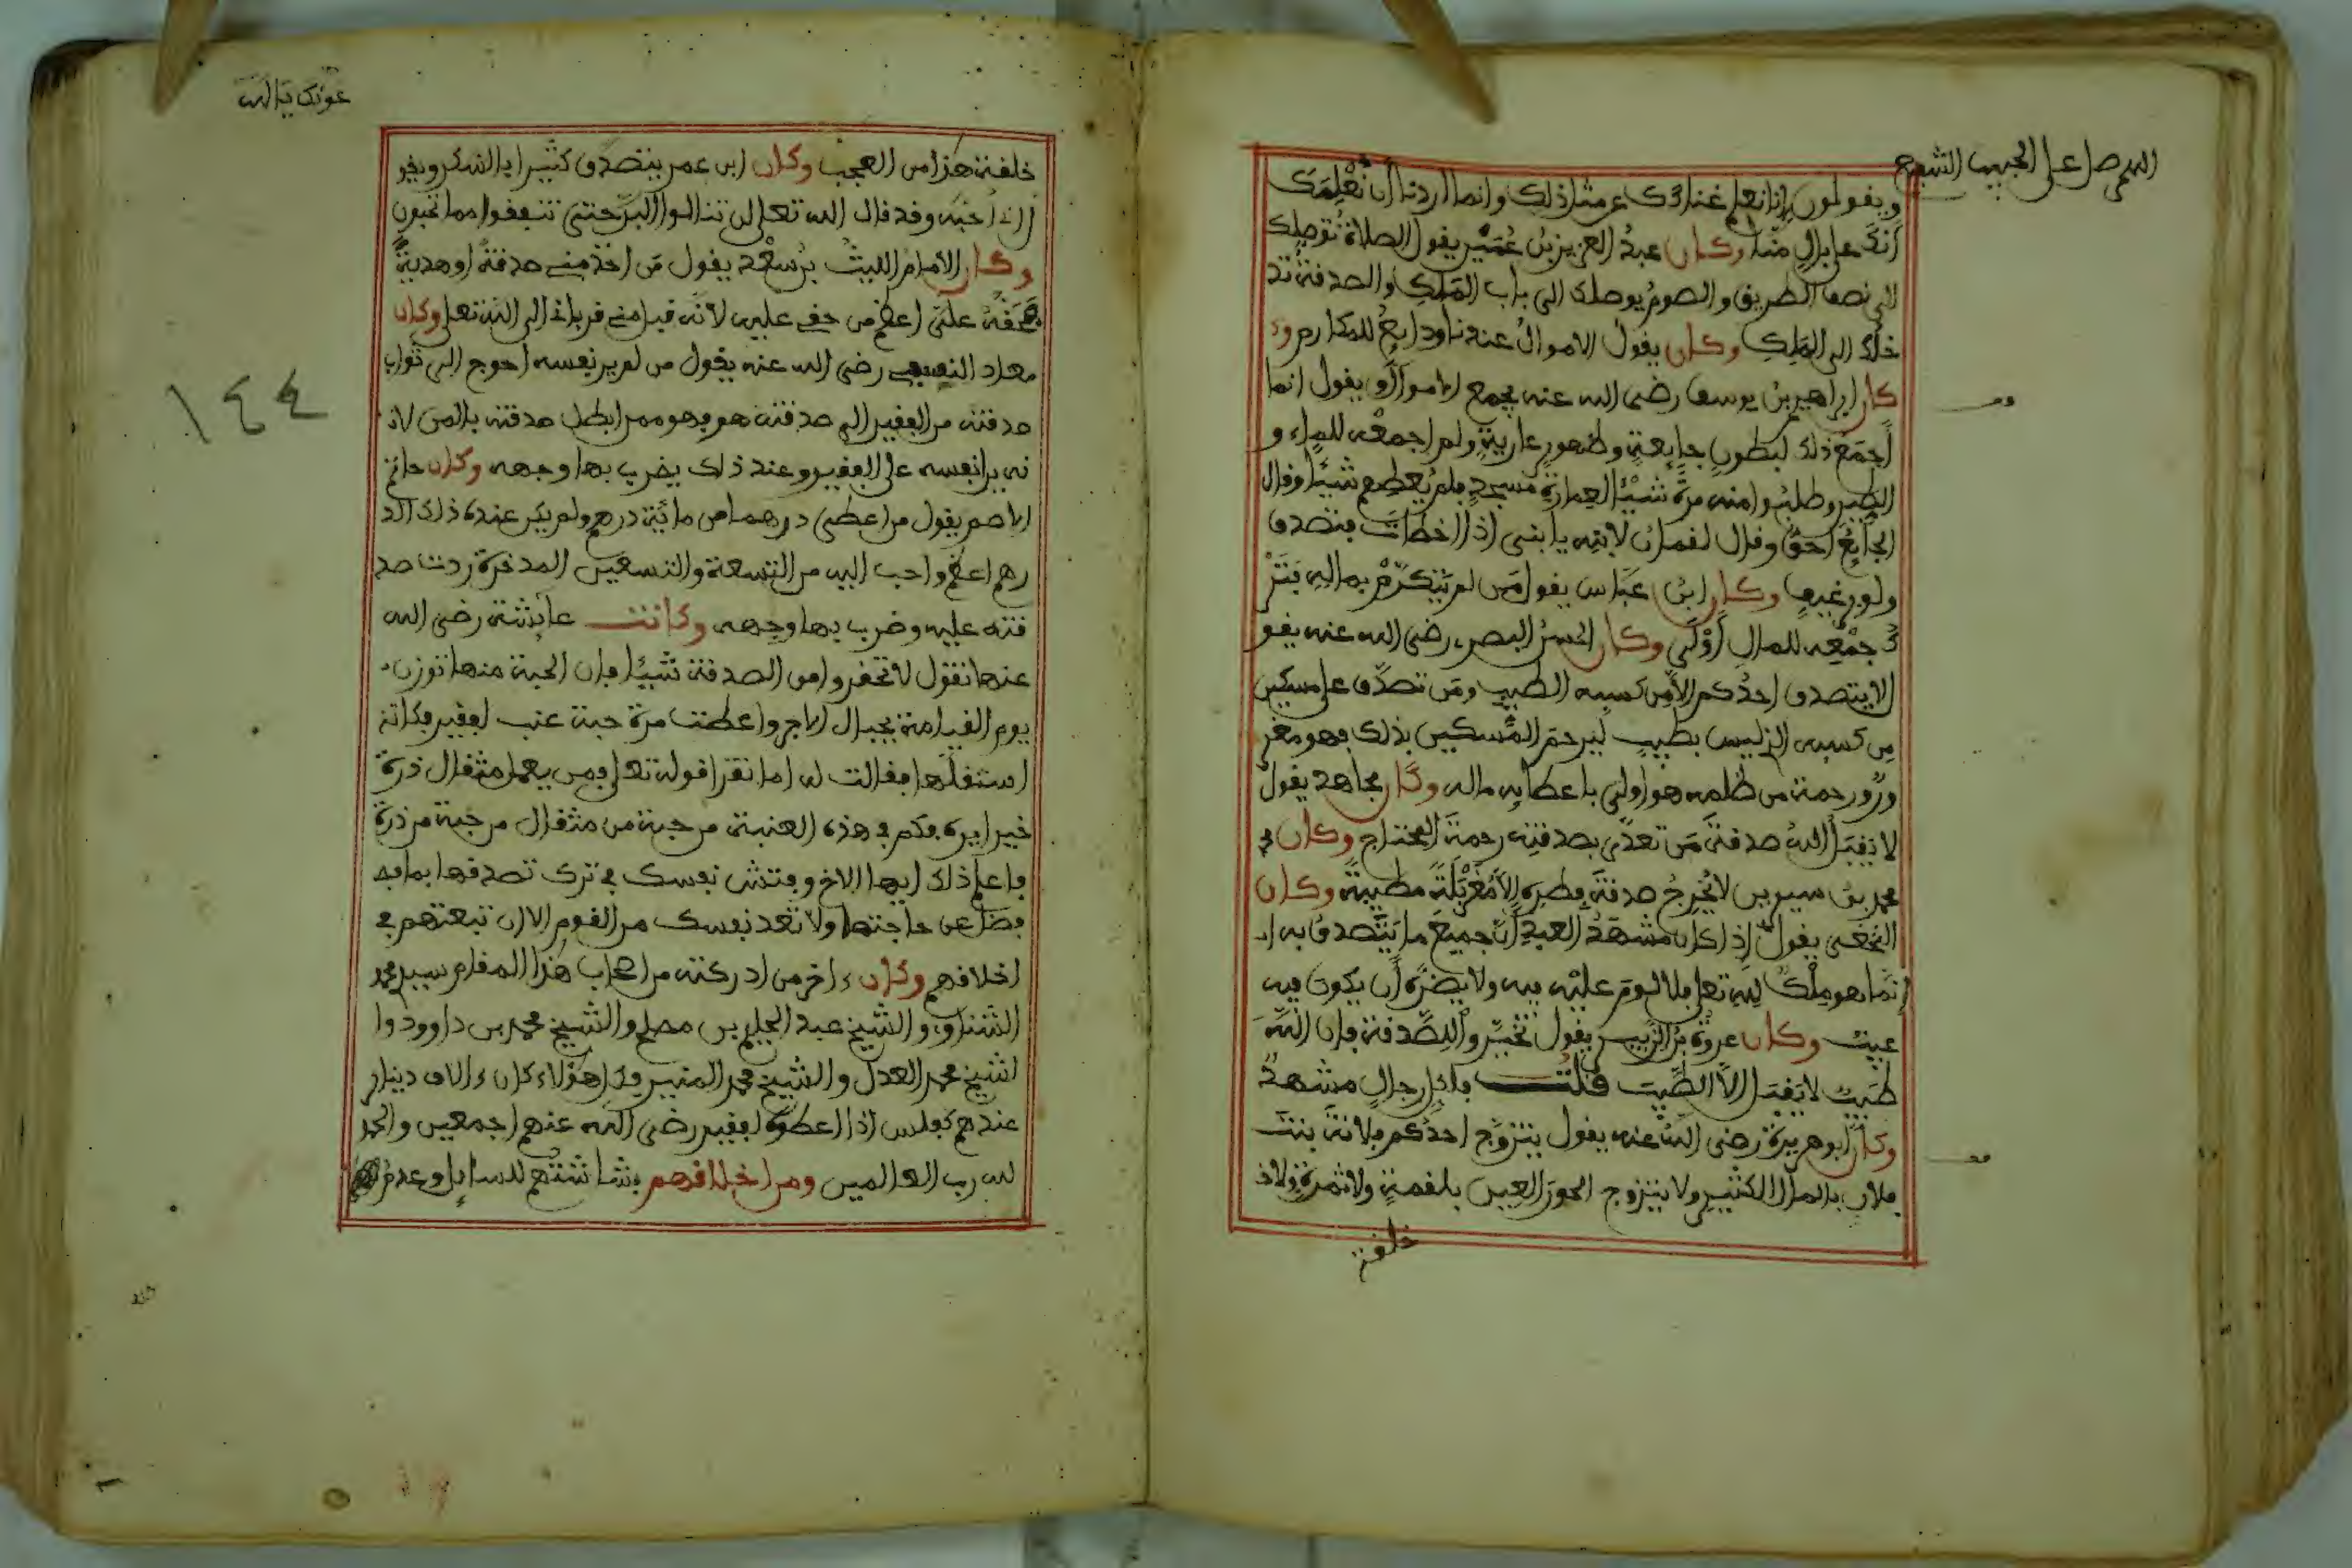 اللهم صل على الحبيب الشفيع
ويقولون إنا نعلم غناءك عن مثل ذلك وانما اردنا أن نعلمك
أنك على بال منا وكان عبد العزيز بن عمير يقول الصلاة توصلك
الى نصف الطريق والصوم يوصلك الى باب الملك والصدقة تد
خلك الى الملك وكان يقول الاموال عندنا ودايع للمكارم و
كان ابراهيم بن يوسف رضى الله عنه يجمع الاموال ويقول انما
أجمع ذلك لبطون جايعة وظهور عارية ولم اجمعه للماء و
الطين وطلبوا منه مرة شيئا لعمارة مسجد فلم يعطهم شيئا وقال
الجايع احق وقال لقمان لابنه يا بنى اذا اخطات فتصدق
ولو برغيف وكان ابن عباس يقول من لم يتكرم بماله فتر
ك جمعه للمال أولى وكان الحسن البصرى رضى الله عنه يقو
لا يتصدق احدكم الا من كسبه الطيب ومن تصدق على مسكين
من كسبه الذى ليس بطيب ليرحم المسكين بذلك فهو مغر
ور ورحمة من ظلمه هو اولى باعطايه ماله وكان مجاهد يقول
لا يقبل الله صدقة من تعدى بصدقته رحمه المحتاج وكان
محمد بن سيرين لا يخرج صدقة فطره الا مغربلة مطيبة وكان
النخعى يقول إذا كان مشهد العبد أن جميع ما يتصدق به
إنما هو ملك لله تعلى فلا لوم عليه فيه ولا يضره أن يكون فيه
عيب وكان عروة بن الزبير يقول تخيروا للصدقة فان الله
طيب لا يقبل الا الطيب قلت فلكل رجال مشهد
وكان ابو هريرة رضى الله عنه يقول يتزوج احدكم فلانة بنت
فلان بالمال الكثير ولا يتزوج الحور العين بلقمة ولا ثمرة ولا خ
خلقة
عونك يا الله
خلقة هذا من العجب وكان ابن عمر يتصدق كثيرا بالسكر ويقو
ل انا احبه وقد قال الله تعلى لن تنالوا البر حتى تنفقوا مما تحبون
وكان الامام الليث بن سعد يقول من اخذ منى صدقة او هدية
فحقه على اعظم من حقى عليه لانه قبل منى قربانى الى الله تعلى وكان
معاذ النسفى رضى الله عنه يقول من لم ير نفسه احوج الى ثواب
صدقته من الفقير الى صدقته هو فهو ممن ابطل صدقته بالمن لا
نه يرا نفسه على الفقير وعند ذلك يضرب بها وجهه وكان حاتم
الاصم يقول من اعطى درهما من مائة درهم ولم يكن عنده ذلك الد
رهم اعظم واحب اليه من التسعة والتسعين المدخرة ردت صد
قته عليه وضرب بها وجهه وكانت عايشة رضى الله
عنها تقول لا تحقروا من الصدقة شيئا فان الحبة منها توزن
يوم القيامة بجبال الاجر واعطت مرة حبة عنب لفقير فكانه
استقلها فقالت له اما تقرا قوله تعلى فمن يعمل مثقال ذرة
خيرا يره فكم فى هذه العنبة من حبة من مثقال من حبة من ذرة
فاعلم ذلك ايها الاخ وفتش نفسك فى ترك تصدقها بما
فضل عن حاجتها ولا تعد نفسك من القوم الا ان تبعتهم فى
اخلاقهم وكان ءاخر من ادركته من اصحاب هذا المقام سيدى محمد
الشناوى والشيخ عبد الحليم بن مصلح والشيخ محمد بن داوود وا
لشيخ محمد العدل والشيخ محمد المنير فكل هؤلاء كان ءالاف دينار
عندهم كفلس اذا اعطوه لفقير رضى الله عنهم اجمعين والحمد
لله رب العالمين ومن اخلاقهم بشاشتهم للسايل وعدم
١٤٤